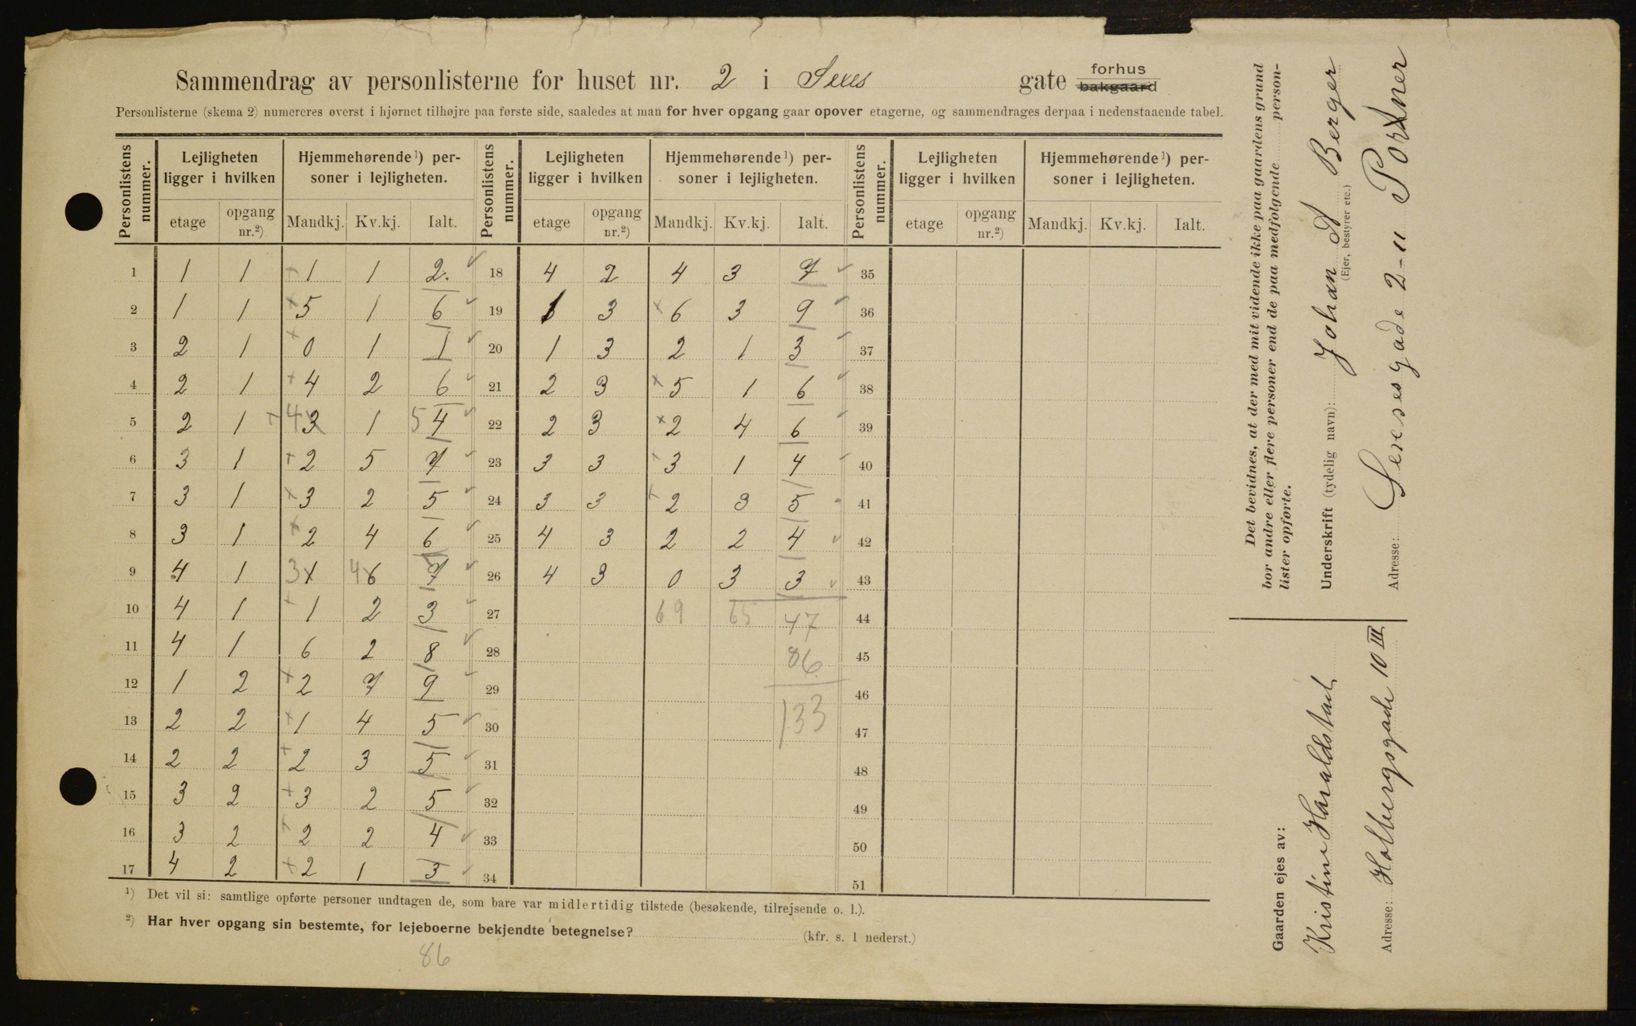 Sammendrag av personlisterne for huset nr. 2 i Sexes gate forhus bakgaard
Personlisterne (skema 2) numereres øverst i hjørnet tilhøjre paa første side, saaledes at man for hver opgang gaar opover etagerne, og sammendrages derpaa i nedenstaaende tabel.
Personlistens nummer. | Lejligheten ligger i hvilken etage | opgang nr.²) | Hjemmehørende¹) personer i lejligheten. Mandkj. | Kv.kj. | Ialt.
1 | 1 | 1 | 1 | 1 | 2.
2 | 1 | 1 | 5 | 1 | 6
3 | 2 | 1 | 0 | 1 | 1
4 | 2 | 1 | 4 | 2 | 6
5 | 2 | 1 | 4 3 | 1 | 5 4
6 | 3 | 1 | 2 | 5 | 7
7 | 3 | 1 | 3 | 2 | 5
8 | 3 | 1 | 2 | 4 | 6
9 | 4 | 1 | 3 1 | 4 6 | 7
10 | 4 | 1 | 1 | 2 | 3
11 | 4 | 1 | 6 | 2 | 8
12 | 1 | 2 | 2 | 7 | 9
13 | 2 | 2 | 1 | 4 | 5
14 | 2 | 2 | 2 | 3 | 5
15 | 3 | 2 | 3 | 2 | 5
16 | 3 | 2 | 2 | 2 | 4
17 | 4 | 2 | 2 | 1 | 3
Personlistens nummer. | Lejligheten ligger i hvilken etage | opgang nr.²) | Hjemmehørende¹) personer i lejligheten. Mandkj. | Kv.kj. | Ialt.
18 | 4 | 2 | 4 | 3 | 7
19 | 1 | 3 | 6 | 3 | 9
20 | 1 | 3 | 2 | 1 | 3
21 | 2 | 3 | 5 | 1 | 6
22 | 2 | 3 | 2 | 4 | 6
23 | 3 | 3 | 3 | 1 | 4
24 | 3 | 3 | 2 | 3 | 5
25 | 4 | 3 | 2 | 2 | 4
26 | 4 | 3 | 0 | 3 | 3
27 | 69 | 65 | 47
28 | 86
29
30 | 133
31
32
33
34
Personlistens nummer. | Lejligheten ligger i hvilken etage | opgang nr.²) | Hjemmehørende¹) personer i lejligheten. Mandkj. | Kv.kj. | Ialt.
35
36
37
38
39
40
41
42
43
44
45
46
47
48
49
50
51
¹) Det vil si: samtlige opførte personer undtagen de, som bare var midlertidig tilstede (besøkende, tilrejsende o. l.).
²) Har hver opgang sin bestemte, for lejeboerne bekjendte betegnelse? (kfr. s. 1 nederst.)
86
Det bevidnes, at der med mit vidende ikke paa gaardens grund
bor andre eller flere personer end de paa medfølgende personlister opførte.
Underskrift (tydelig navn): Johan A Berger
(Ejer, bestyrer etc.)
Adresse: Sexesgade 2-11 Portner
Gaarden ejes av:
Kristine Haraldstad
Adresse: Holbergsgade 10 III